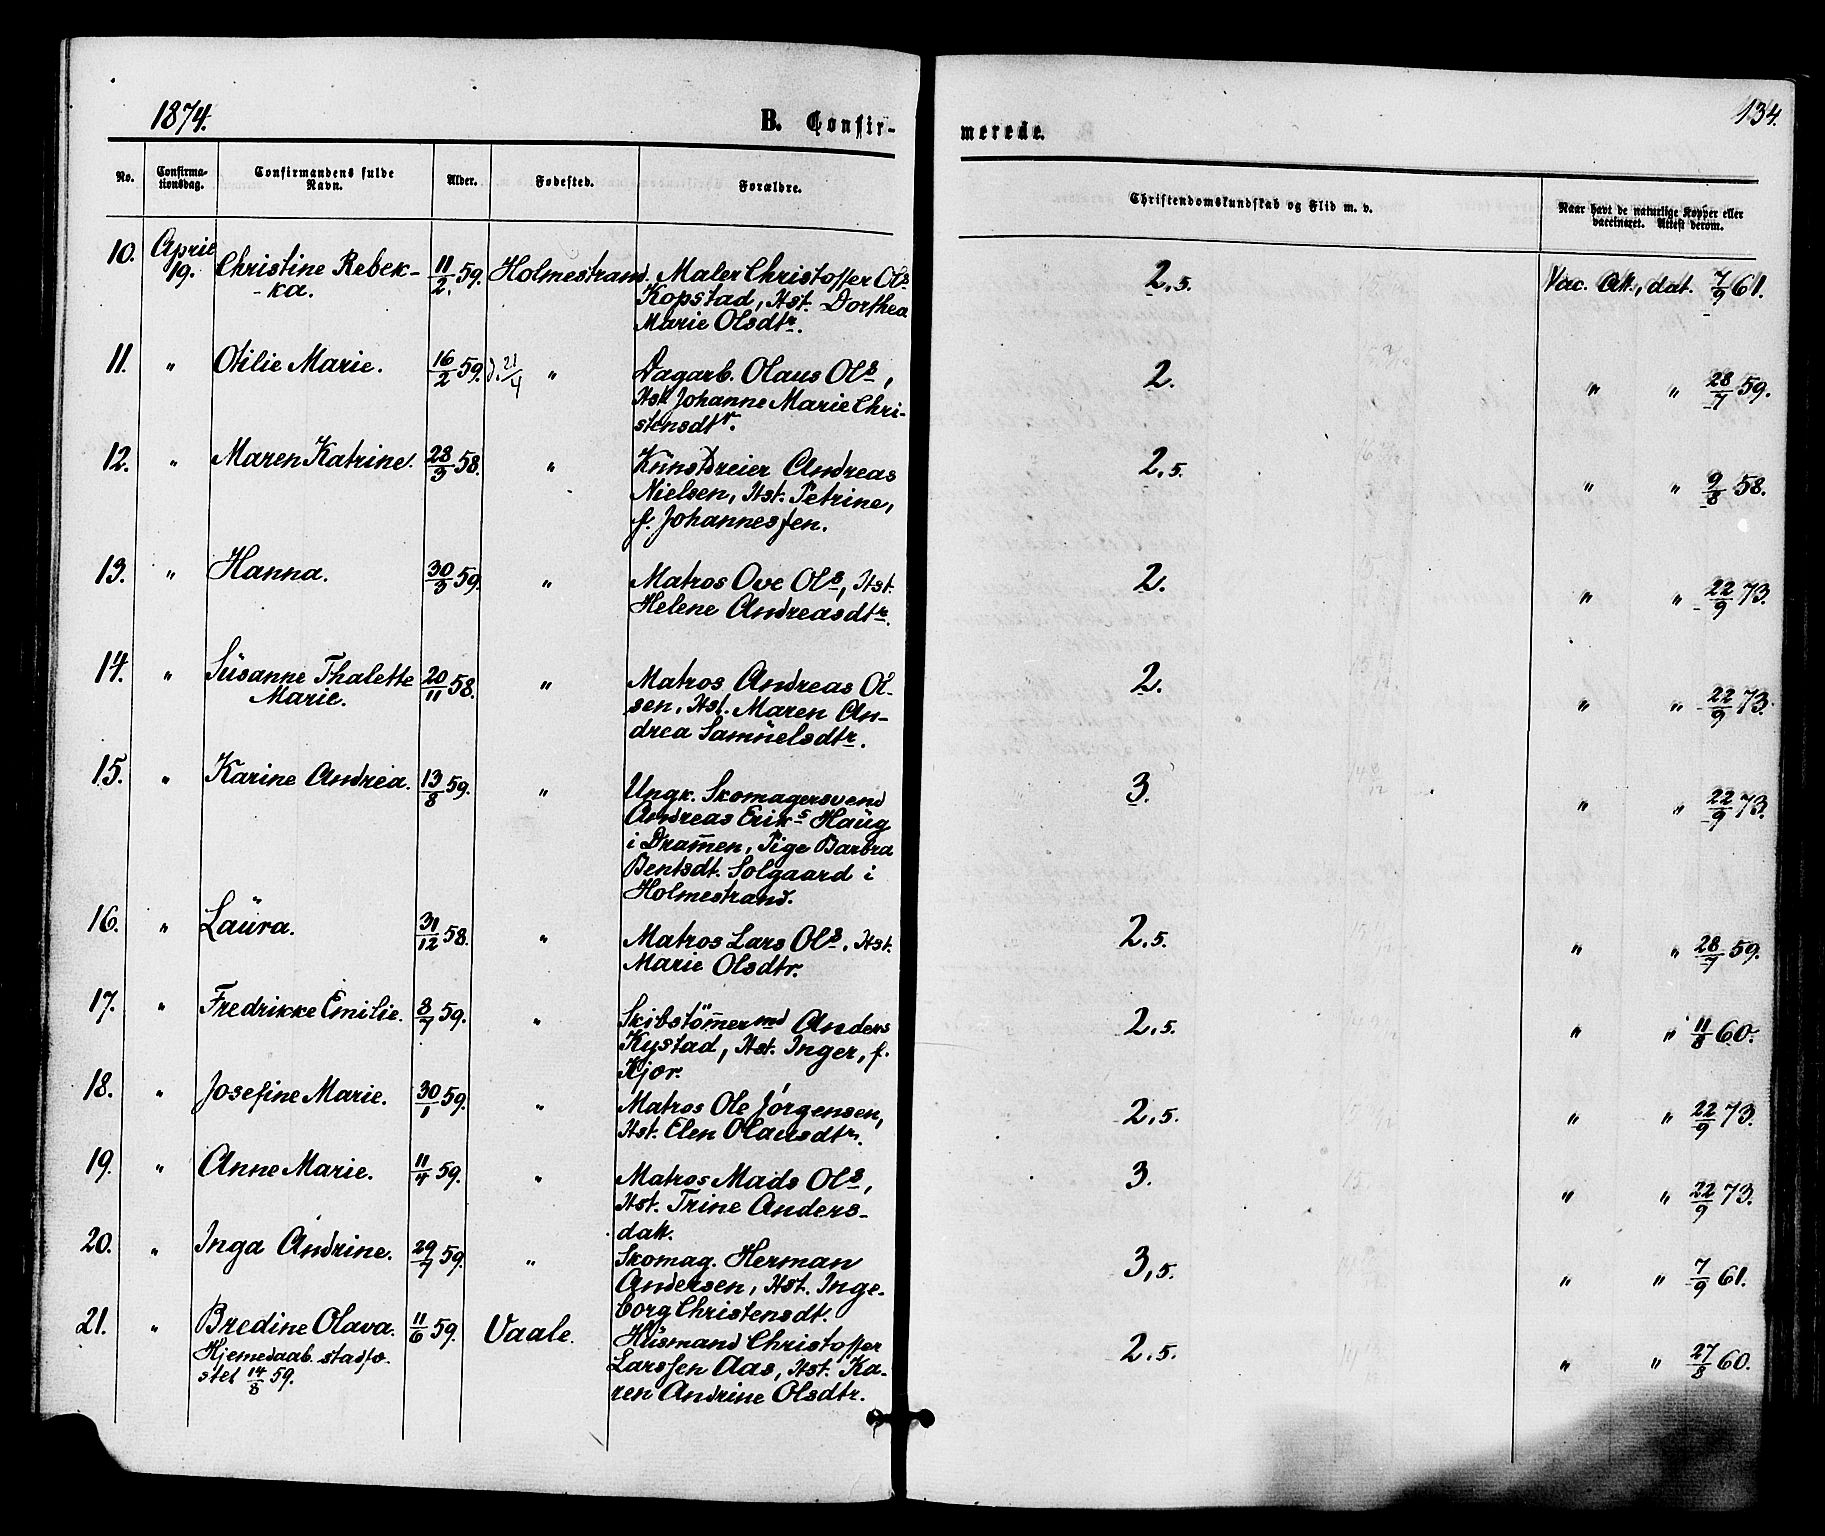 1874.
B. Confir-
merede.
134.
No.
Confirma-
tionsdag.
Confirmandens fulde
Navn.
Alder.
Fødested.
Forældre.
Christendomskundskab og Flid m. v.
Naar havt de naturlige Kopper eller
vaccineret. Attest derom.
10. April 19. Christine Rebek- 11/2 59. Holmestrand. Maler Christoffer Ols 2,5. Vac. Att., dat. 7/9 61.
-ka. Kopstad, Hst. Dorthea
Marie Olsdtr.
11. " Otilie Marie. 16/2 59. d. 21/4 " Dagarb. Olaus Ols, 2. " " 28/7 59.
Hst. Johanne Marie Chri-
stensdtr.
12. " Maren Katrine. 28/3 58. " Kunstdreier Andreas 2,5. " " 9/8 58.
Nielsen, Hst. Petrine,
f. Johannessen.
13. " Hanna. 30/3 59. " Matros Ove Ols, Hst. 2. " " 22/9 73.
Helene Andreasdtr.
14. " Susanne Thalette 20/11 58. " Matros Andreas Ol- 2. " " 22/9 73.
Marie. sen, Hst. Maren An-
drea Samuelsdtr.
15. " Karine Andrea. 13/8 59. " Ungk. Skomagersvend 3. " " 22/9 73.
Andreas Eriks Haug
i Dram̄en, Pige Barbra
Bentsdt. Solgaard i
Holmestrand.
16. " Laura. 31/12 58. " Matros Lars Ols, Hst. 2,5. " " 28/7 59.
Marie Olsdtr.
17. " Fredrikke Emilie. 8/7 59. " Skibstöm̄ermd Anders 2,5. " " 11/8 60.
Kystad, Hst. Inger, f.
Kjør.
18. " Josefine Marie. 30/1 59. " Matros Ole Jørgensen, 2,5. " " 22/9 73.
Hst. Elen Olausdtr.
19. " Anne Marie. 11/4 59. " Matros Mads Ols, 3. " " 22/9 73.
Hst. Trine Anders-
datt.
20. " Inga Andrine. 29/7 59. " Skomag. Herman 3,5. " " 7/9 61.
Andersen, Hst. Inge-
borg Christensdt.
21. " Bredine Olava. 11/6 59. Vaale. Husmand Christoffer 2,5. " " 27/8 60.
Hjemedaab stadfæ- Larssen Aas, Hst. Ka-
stet 14/8 59. ren Andrine Olsdtr.